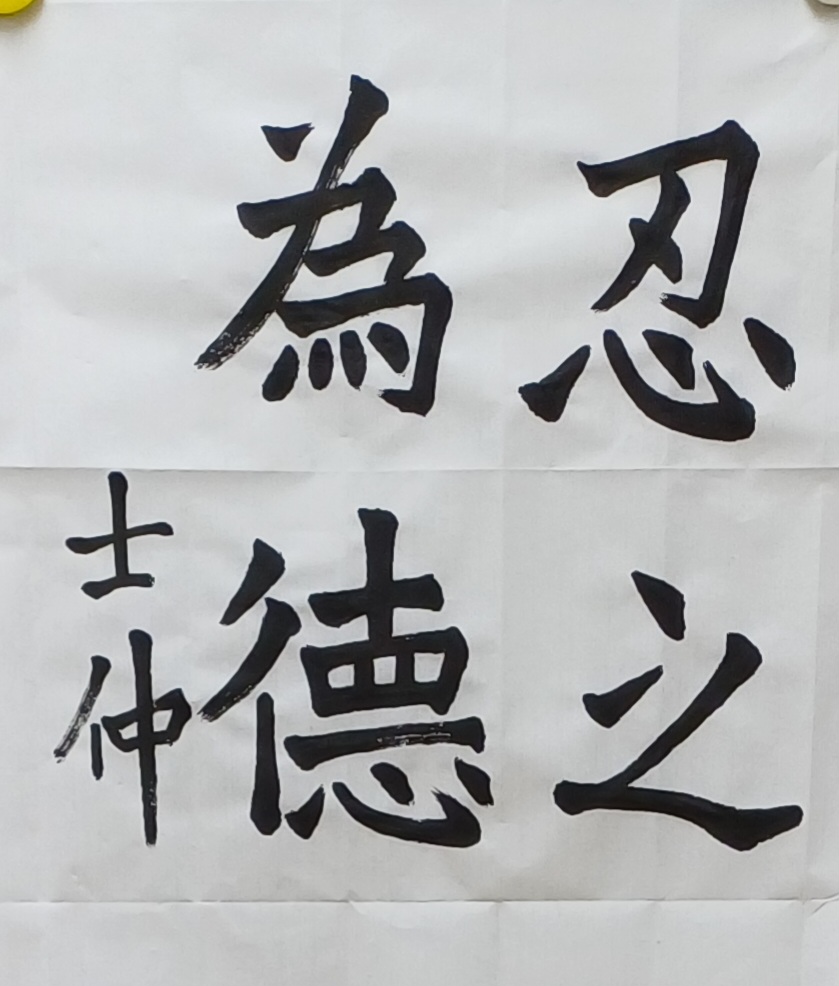 忍之
為德
士仲